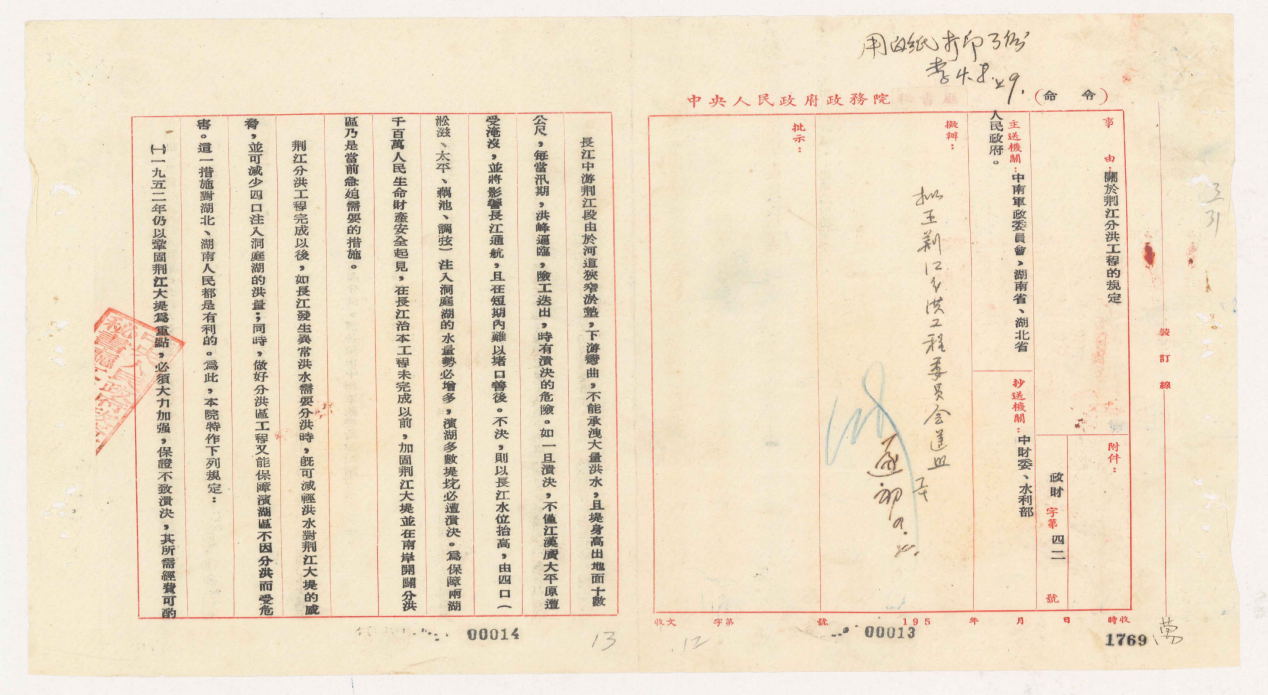 用白紙打印3份
李4.8.29.
中央人民政府政務院
（命令）
事由：關於荆江分洪工程的規定
附件：
政財字第四二號
主送機關：中南軍政委員會，湖南省、湖北省
人民政府。
抄送機關：中財委、水利部
擬辦：
批示：
裝訂線
收文 字第 號 195 年 月 日 收時
00013
12
1769
長江中游荆江段由於河道狹窄淤墊，下游彎曲，不能承洩大量洪水，且堤身高出地面十數
公尺，每當汛期，洪峰逼臨，險工迭出，時有潰決的危險。如一旦潰決，不僅江漢廣大平原遭
受淹沒，並將影響長江通航，且在短期內難以堵口善後。不決，則以長江水位抬高，由四口（
淞滋、太平、藕池、調弦）注入洞庭湖的水量勢必增多，濱湖多數堤垸必遭潰決。為保障兩湖
千百萬人民生命財產安全起見，在長江治本工程未完成以前，加固荆江大堤並在南岸開闢分洪
區乃是當前急迫需要的措施。
荆江分洪工程完成以後，如長江發生異常洪水需要分洪時，既可減輕洪水對荆江大堤的威
脅，並可減少四口注入洞庭湖的洪量；同時，做好分洪區工程又能保障濱湖區不因分洪而受危
害。這一措施對湖北、湖南人民都是有利的。為此，本院特作下列規定：
㈠一九五二年仍以鞏固荆江大堤為重點，必須大力加强，保證不致潰決，其所需經費可酌
00014
13